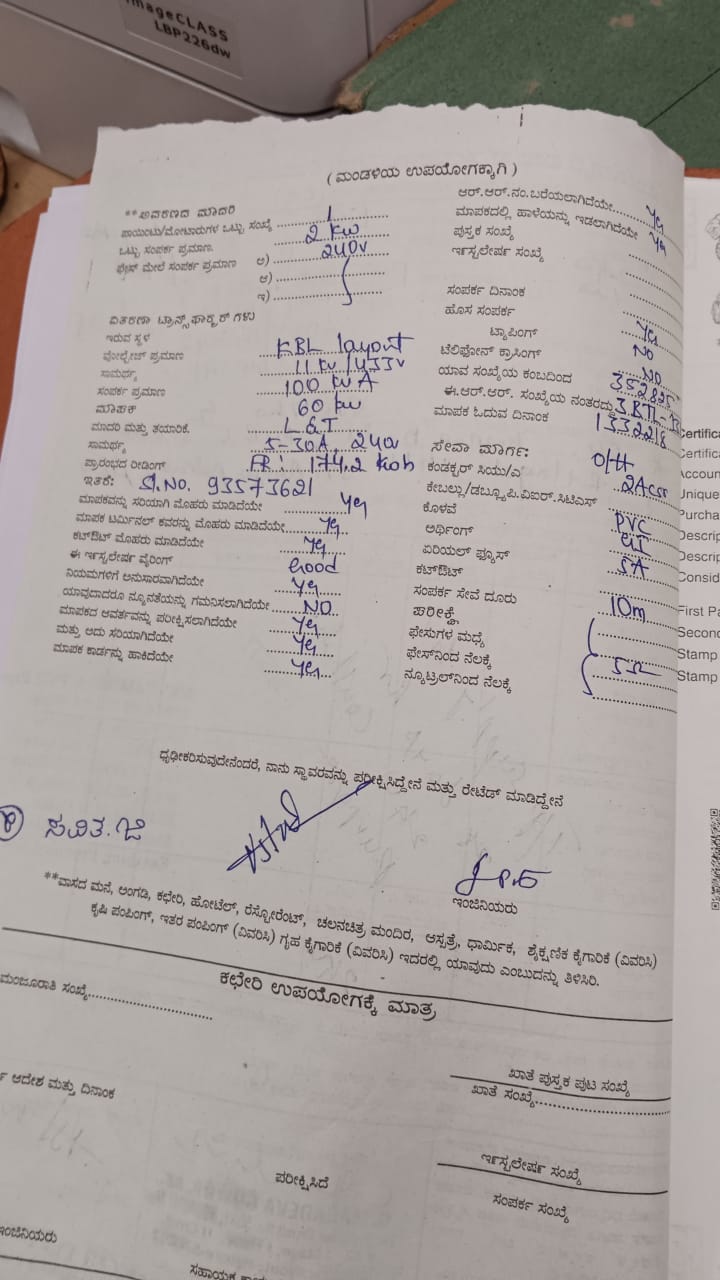 imageCLASS
LBP226dw
( ಮಂಡಳಿಯ ಉಪಯೋಗಕ್ಕಾಗಿ )
**ಆವರಣದ ಮಾದರಿ
ಪಾಯಿಂಟು/ಮೋಟಾರುಗಳ ಒಟ್ಟು ಸಂಖ್ಯೆ 1
ಒಟ್ಟು ಸಂಪರ್ಕ ಪ್ರಮಾಣ. 2 KW
ಫೇಸ್ ಮೇಲೆ ಸಂಪರ್ಕ ಪ್ರಮಾಣ ಅ) 240V
ಆ)
ಇ)
ವಿತರಣಾ ಟ್ರಾನ್ಸ್‌ಫಾರ್ಮರ್‌ಗಳು
ಇರುವ ಸ್ಥಳ KBL layout
ವೋಲ್ಟೇಜ್ ಪ್ರಮಾಣ 11 KV/433V
ಸಾಮರ್ಥ್ಯ 100 KVA
ಸಂಪರ್ಕ ಪ್ರಮಾಣ 60 KW
ಮಾಪಕ
ಮಾದರಿ ಮತ್ತು ತಯಾರಿಕೆ. L&T
ಸಾಮರ್ಥ್ಯ 5-30A, 240V
ಪ್ರಾರಂಭದ ರೀಡಿಂಗ್ 174.2 kwh
ಇತರೆ: Sl.No. 93573621
ಮಾಪಕವನ್ನು ಸರಿಯಾಗಿ ಮೊಹರು ಮಾಡಿದೆಯೇ Yes
ಮಾಪಕ ಟರ್ಮಿನಲ್ ಕವರನ್ನು ಮೊಹರು ಮಾಡಿದೆಯೇ Yes
ಕಟ್‌ಔಟ್ ಮೊಹರು ಮಾಡಿದೆಯೇ Yes
ಈ ಇನ್ಸ್ಟಲೇಷನ್ ವೈರಿಂಗ್ Good
ನಿಯಮಗಳಿಗೆ ಅನುಸಾರವಾಗಿದೆಯೇ Yes
ಯಾವುದಾದರೂ ನ್ಯೂನತೆಯನ್ನು ಗಮನಿಸಲಾಗಿದೆಯೇ NO
ಮಾಪಕದ ಆವರ್ತವನ್ನು ಪರೀಕ್ಷಿಸಲಾಗಿದೆಯೇ Yes
ಮತ್ತು ಅದು ಸರಿಯಾಗಿದೆಯೇ Yes
ಮಾಪಕ ಕಾರ್ಡನ್ನು ಹಾಕಿದೆಯೇ Yes
ಆರ್.ಆರ್.ನಂ.ಬರೆಯಲಾಗಿದೆಯೇ Yes
ಮಾಪಕದಲ್ಲಿ ಹಾಳೆಯನ್ನು ಇಡಲಾಗಿದೆಯೇ Yes
ಪುಸ್ತಕ ಸಂಖ್ಯೆ
ಇನ್ಸ್ಟಲೇಷನ್ ಸಂಖ್ಯೆ
ಸಂಪರ್ಕ ದಿನಾಂಕ
ಹೊಸ ಸಂಪರ್ಕ Yes
ಟ್ಯಾಪಿಂಗ್ NO
ಟೆಲಿಫೋನ್ ಕ್ರಾಸಿಂಗ್ NO
ಯಾವ ಸಂಖ್ಯೆಯ ಕಂಬದಿಂದ
ಈ.ಆರ್.ಆರ್. ಸಂಖ್ಯೆಯ ನಂತರದ್ದು
ಮಾಪಕ ಓದುವ ದಿನಾಂಕ
ಸೇವಾ ಮಾರ್ಗ: O/H
ಕಂಡಕ್ಟರ್ ಸಿಯು/ಎ
ಕೇಬಲ್ಲು/ಡಬ್ಲ್ಯೂ.ಪಿ.ವಿಐಆರ್.ಸಿಟಿಎಸ್
ಕೊಳವೆ PVC
ಅರ್ಥಿಂಗ್ GI
ಏರಿಯಲ್ ಫ್ಯೂಸ್ 5A
ಕಟ್‌ಔಟ್
ಸಂಪರ್ಕ ಸೇವೆ ದೂರು 10m
ಪರೀಕ್ಷೆ
ಫೇಸುಗಳ ಮಧ್ಯೆ
ಫೇಸ್‌ನಿಂದ ನೆಲಕ್ಕೆ
ನ್ಯೂಟ್ರಲ್‌ನಿಂದ ನೆಲಕ್ಕೆ
ಧೃಢೀಕರಿಸುವುದೇನೆಂದರೆ, ನಾನು ಸ್ಥಾವರವನ್ನು ಪರೀಕ್ಷಿಸಿದ್ದೇನೆ ಮತ್ತು ರೇಟೆಡ್ ಮಾಡಿದ್ದೇನೆ
ಸವಿತ.ಜೆ
ಇಂಜಿನಿಯರು
**ವಾಸದ ಮನೆ, ಅಂಗಡಿ, ಕಛೇರಿ, ಹೋಟೆಲ್, ರೆಸ್ಟೋರೆಂಟ್, ಚಲನಚಿತ್ರ ಮಂದಿರ, ಆಸ್ಪತ್ರೆ, ಧಾರ್ಮಿಕ, ಶೈಕ್ಷಣಿಕ ಕೈಗಾರಿಕೆ (ವಿವರಿಸಿ)
ಕೃಷಿ ಪಂಪಿಂಗ್, ಇತರ ಪಂಪಿಂಗ್ (ವಿವರಿಸಿ) ಗೃಹ ಕೈಗಾರಿಕೆ (ವಿವರಿಸಿ) ಇದರಲ್ಲಿ ಯಾವುದು ಎಂಬುದನ್ನು ತಿಳಿಸಿರಿ.
ಕಛೇರಿ ಉಪಯೋಗಕ್ಕೆ ಮಾತ್ರ
ಮಂಜೂರಾತಿ ಸಂಖ್ಯೆ
ಖಾತೆ ಪುಸ್ತಕ ಪುಟ ಸಂಖ್ಯೆ
ಖಾತೆ ಸಂಖ್ಯೆ
ಆದೇಶ ಮತ್ತು ದಿನಾಂಕ
ಇನ್ಸ್ಟಲೇಷನ್ ಸಂಖ್ಯೆ
ಪರೀಕ್ಷಿಸಿದೆ
ಸಂಪರ್ಕ ಸಂಖ್ಯೆ
ಇಂಜಿನಿಯರು
ಸಹಾಯಕ
Certifica
Certifica
Accoun
Unique
Purcha
Descrip
Descrip
Consid
First Pa
Second
Stamp
Stamp